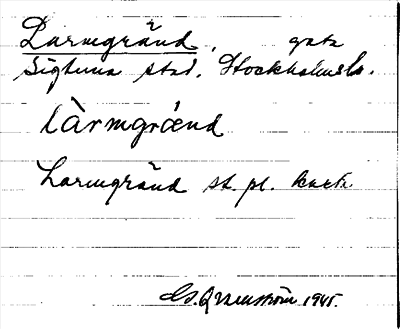 Larmgränd, gata
Sigtuna stad. Stockholms l.
làrmgrǽnd
Larmgränd st. pl. kart.
1945.